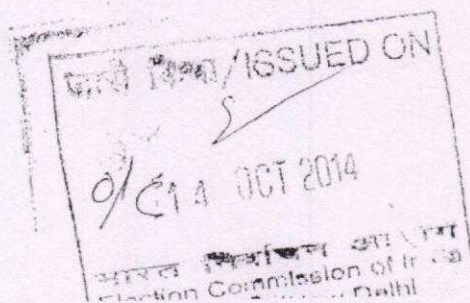 जारी किया/ISSUED ON
o/c 14 OCT 2014
भारत निर्वाचन आयोग
Election Commission of India
Delhi